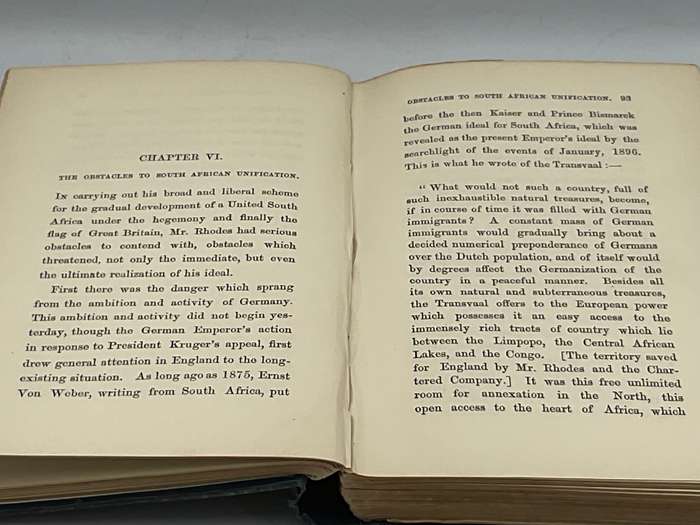 CHAPTER VI.
THE OBSTACLES TO SOUTH AFRICAN UNIFICATION.
In carrying out his broad and liberal scheme
for the gradual development of a United South
Africa under the hegemony and finally the
flag of Great Britain, Mr. Rhodes had serious
obstacles to contend with, obstacles which
threatened, not only the immediate, but even
the ultimate realization of his ideal.
First there was the danger which sprang
from the ambition and activity of Germany.
This ambition and activity did not begin yes-
terday, though the German Emperor's action
in response to President Kruger's appeal, first
drew general attention in England to the long-
existing situation. As long ago as 1875, Ernst
Von Weber, writing from South Africa, put
OBSTACLES TO SOUTH AFRICAN UNIFICATION. 93
before the then Kaiser and Prince Bismarck
the German ideal for South Africa, which was
revealed as the present Emperor's ideal by the
searchlight of the events of January, 1896.
This is what he wrote of the Transvaal :—
" What would not such a country, full of
such inexhaustible natural treasures, become,
if in course of time it was filled with German
immigrants? A constant mass of German
immigrants would gradually bring about a
decided numerical preponderance of Germans
over the Dutch population, and of itself would
by degrees affect the Germanization of the
country in a peaceful manner. Besides all
its own natural and subterraneous treasures,
the Transvaal offers to the European power
which possesses it an easy access to the
immensely rich tracts of country which lie
between the Limpopo, the Central African
Lakes, and the Congo. [The territory saved
for England by Mr. Rhodes and the Char-
tered Company.] It was this free unlimited
room for annexation in the North, this
open access to the heart of Africa, which